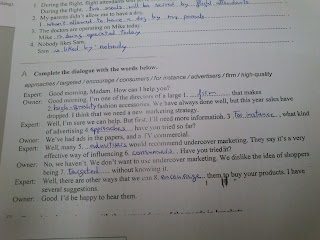 1. During the flight, flight attendants will
During the flight, two meals will be served by flight attendants
2. My parents didn't allow me to have a dog.
I wasn't allowed to have a dog by my parents.
3. The doctors are operating on Mike today.
Mike is being operated today
4. Nobody likes Sam.
Sam is liked by nobody
A Complete the dialogue with the words below.
approaches / targeted / encourage / consumers / for instance / advertisers / firm / high-quality
Expert: Good morning, Madam. How can I help you?
Owner: Good morning. I'm one of the directors of a large 1. firm that makes
2. high-quality fashion accessories. We have always done well, but this year sales have
dropped. I think that we need a new marketing strategy.
Expert: Well, I'm sure we can help. But first, I'll need more information. 3. For instance, what kind
of advertising 4. approaches have you tried so far?
Owner: We've had ads in the papers, and a TV commercial.
Expert: Well, many 5. advertisers would recommend undercover marketing. They say it's a very
effective way of influencing 6. consumers. Have you tried it?
Owner: No, we haven't. We don't want to use undercover marketing. We dislike the idea of shoppers
being 7. targeted without knowing it.
Expert: Well, there are other ways that we can 8. encourage them to buy your products. I have
several suggestions.
Owner: Good. I'd be happy to hear them.